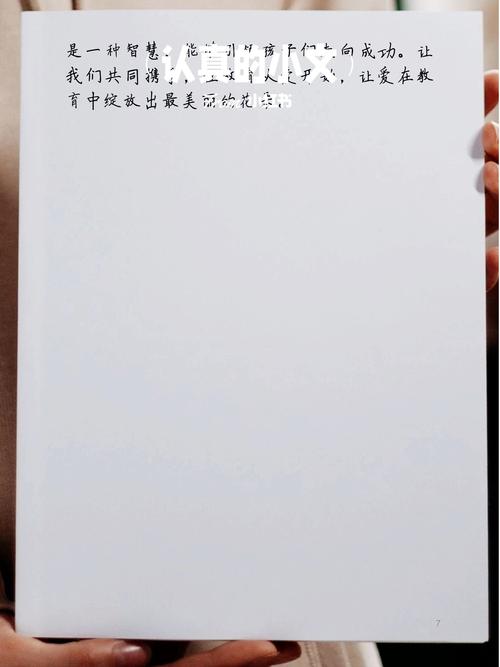 是一种智慧，能够引领孩子们走向成功。让
我们共同携手，，让爱在教
育中绽放出最美丽的花朵。
(认真的小文)
小红书
7